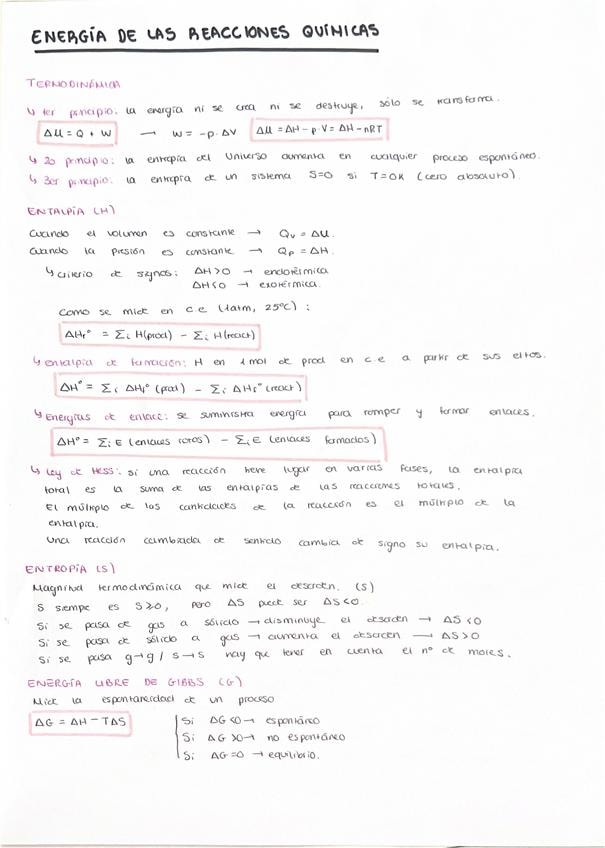 ENERGÍA DE LAS REACCIONES QUÍMICAS
TERMODINÁMICA
↳ 1er principio: la energía ni se crea ni se destruye, sólo se transforma.
ΔU = Q + W → W = -p·ΔV ΔU = ΔH - p·V = ΔH - nRT
↳ 2o principio: la entropía del Universo aumenta en cualquier proceso espontáneo.
↳ 3er principio: la entropía de un sistema S=0 si T=0K (cero absoluto).
ENTALPÍA (H)
Cuando el volumen es constante → Qv = ΔU.
Cuando la presión es constante → Qp = ΔH.
↳ criterio de signos: ΔH>0 → endotérmica
ΔH<0 → exotérmica.
Como se mide en c.e (1atm, 25ºC) :
ΔHrº = Σi H(prod) - Σi H(react)
↳ entalpía de formación: H en 1 mol de prod en c.e a partir de sus eltos.
ΔHº = Σi ΔHfº (prod) - Σi ΔHfº (react)
↳ Energías de enlace: se suministra energía para romper y formar enlaces.
ΔHº = Σi E (enlaces rotos) - Σi E (enlaces formados)
↳ Ley de HESS: si una reacción tiene lugar en varias fases, la entalpía
total es la suma de las entalpías de las reacciones totales.
El múltiplo de las cantidades de la reacción es el múltiplo de la
entalpía.
Una reacción cambiada de sentido cambia de signo su entalpía.
ENTROPÍA (S)
Magnitud termodinámica que mide el desorden. (S)
S siempre es S≥0, pero ΔS puede ser ΔS<0.
Si se pasa de gas a sólido → disminuye el desorden → ΔS<0
Si se pasa de sólido a gas → aumenta el desorden → ΔS>0
Si se pasa g→g / s→s hay que tener en cuenta el nº de moles.
ENERGÍA LIBRE DE GIBBS (G)
Mide la espontaneidad de un proceso
ΔG = ΔH - TΔS Si ΔG<0 → espontáneo
Si ΔG>0 → no espontáneo
Si ΔG=0 → equilibrio.